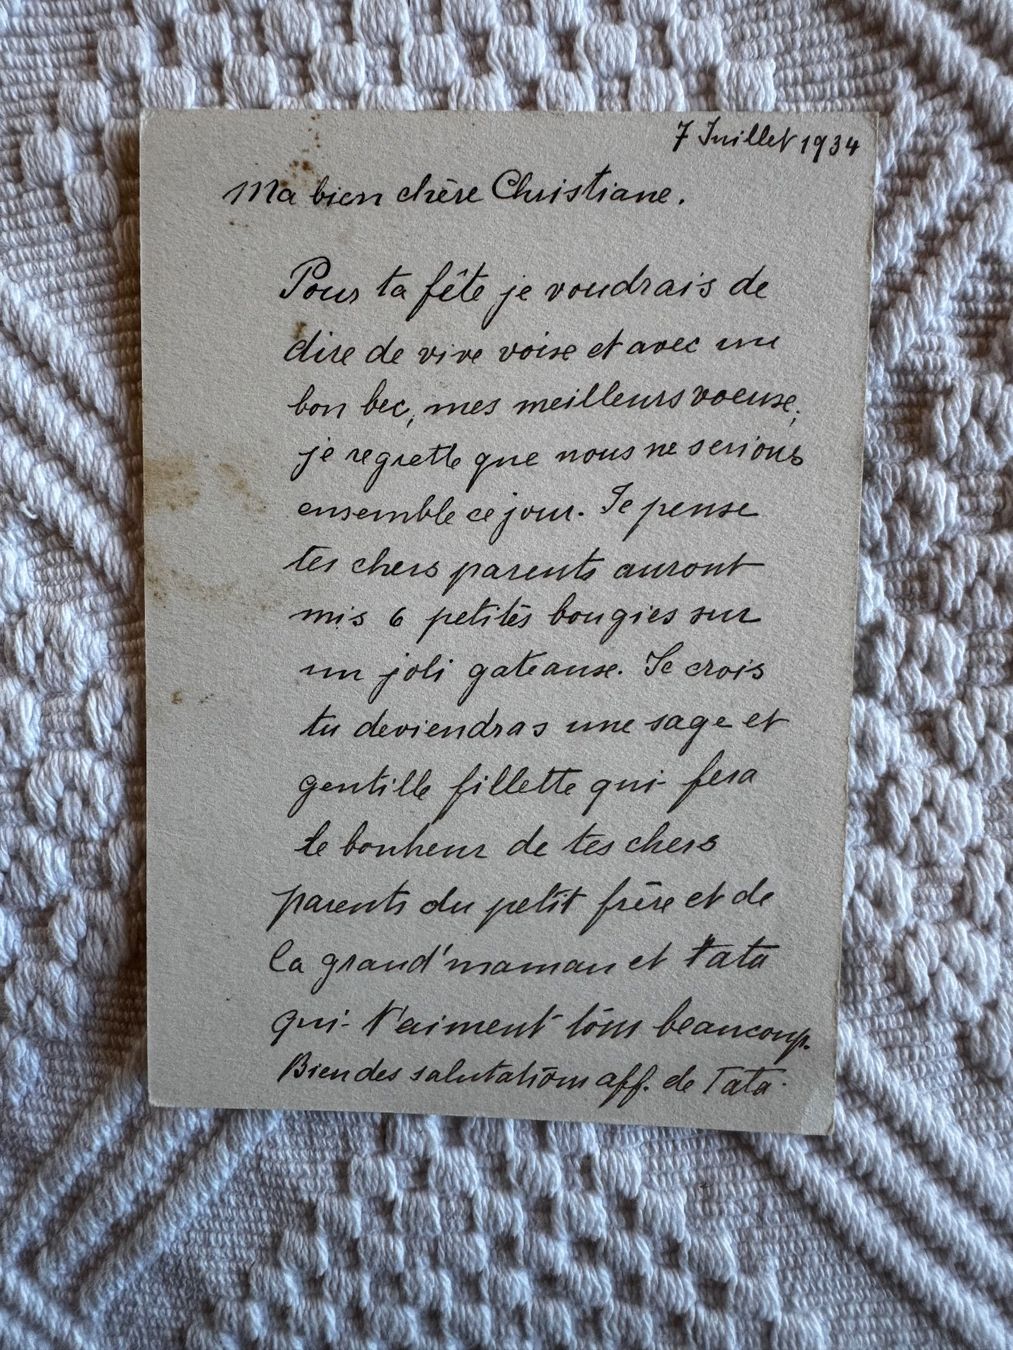 7 Juillet 1934
Ma bien chère Christiane.
Pour ta fête je voudrais de
dire de vive voixe et avec un
bon bec, mes meilleurs voeuxe,
je regrette que nous ne serions
ensemble ce jour. Je pense
tes chers parents auront
mis 6 petites bougies sur
un joli gateauxe. Je crois
tu deviendras une sage et
gentille fillette qui fera
le bonheur de tes chers
parents du petit frère et de
la grand'maman et tata
qui t'aiment tous beaucoup.
Bien des salutations aff. de Tata.